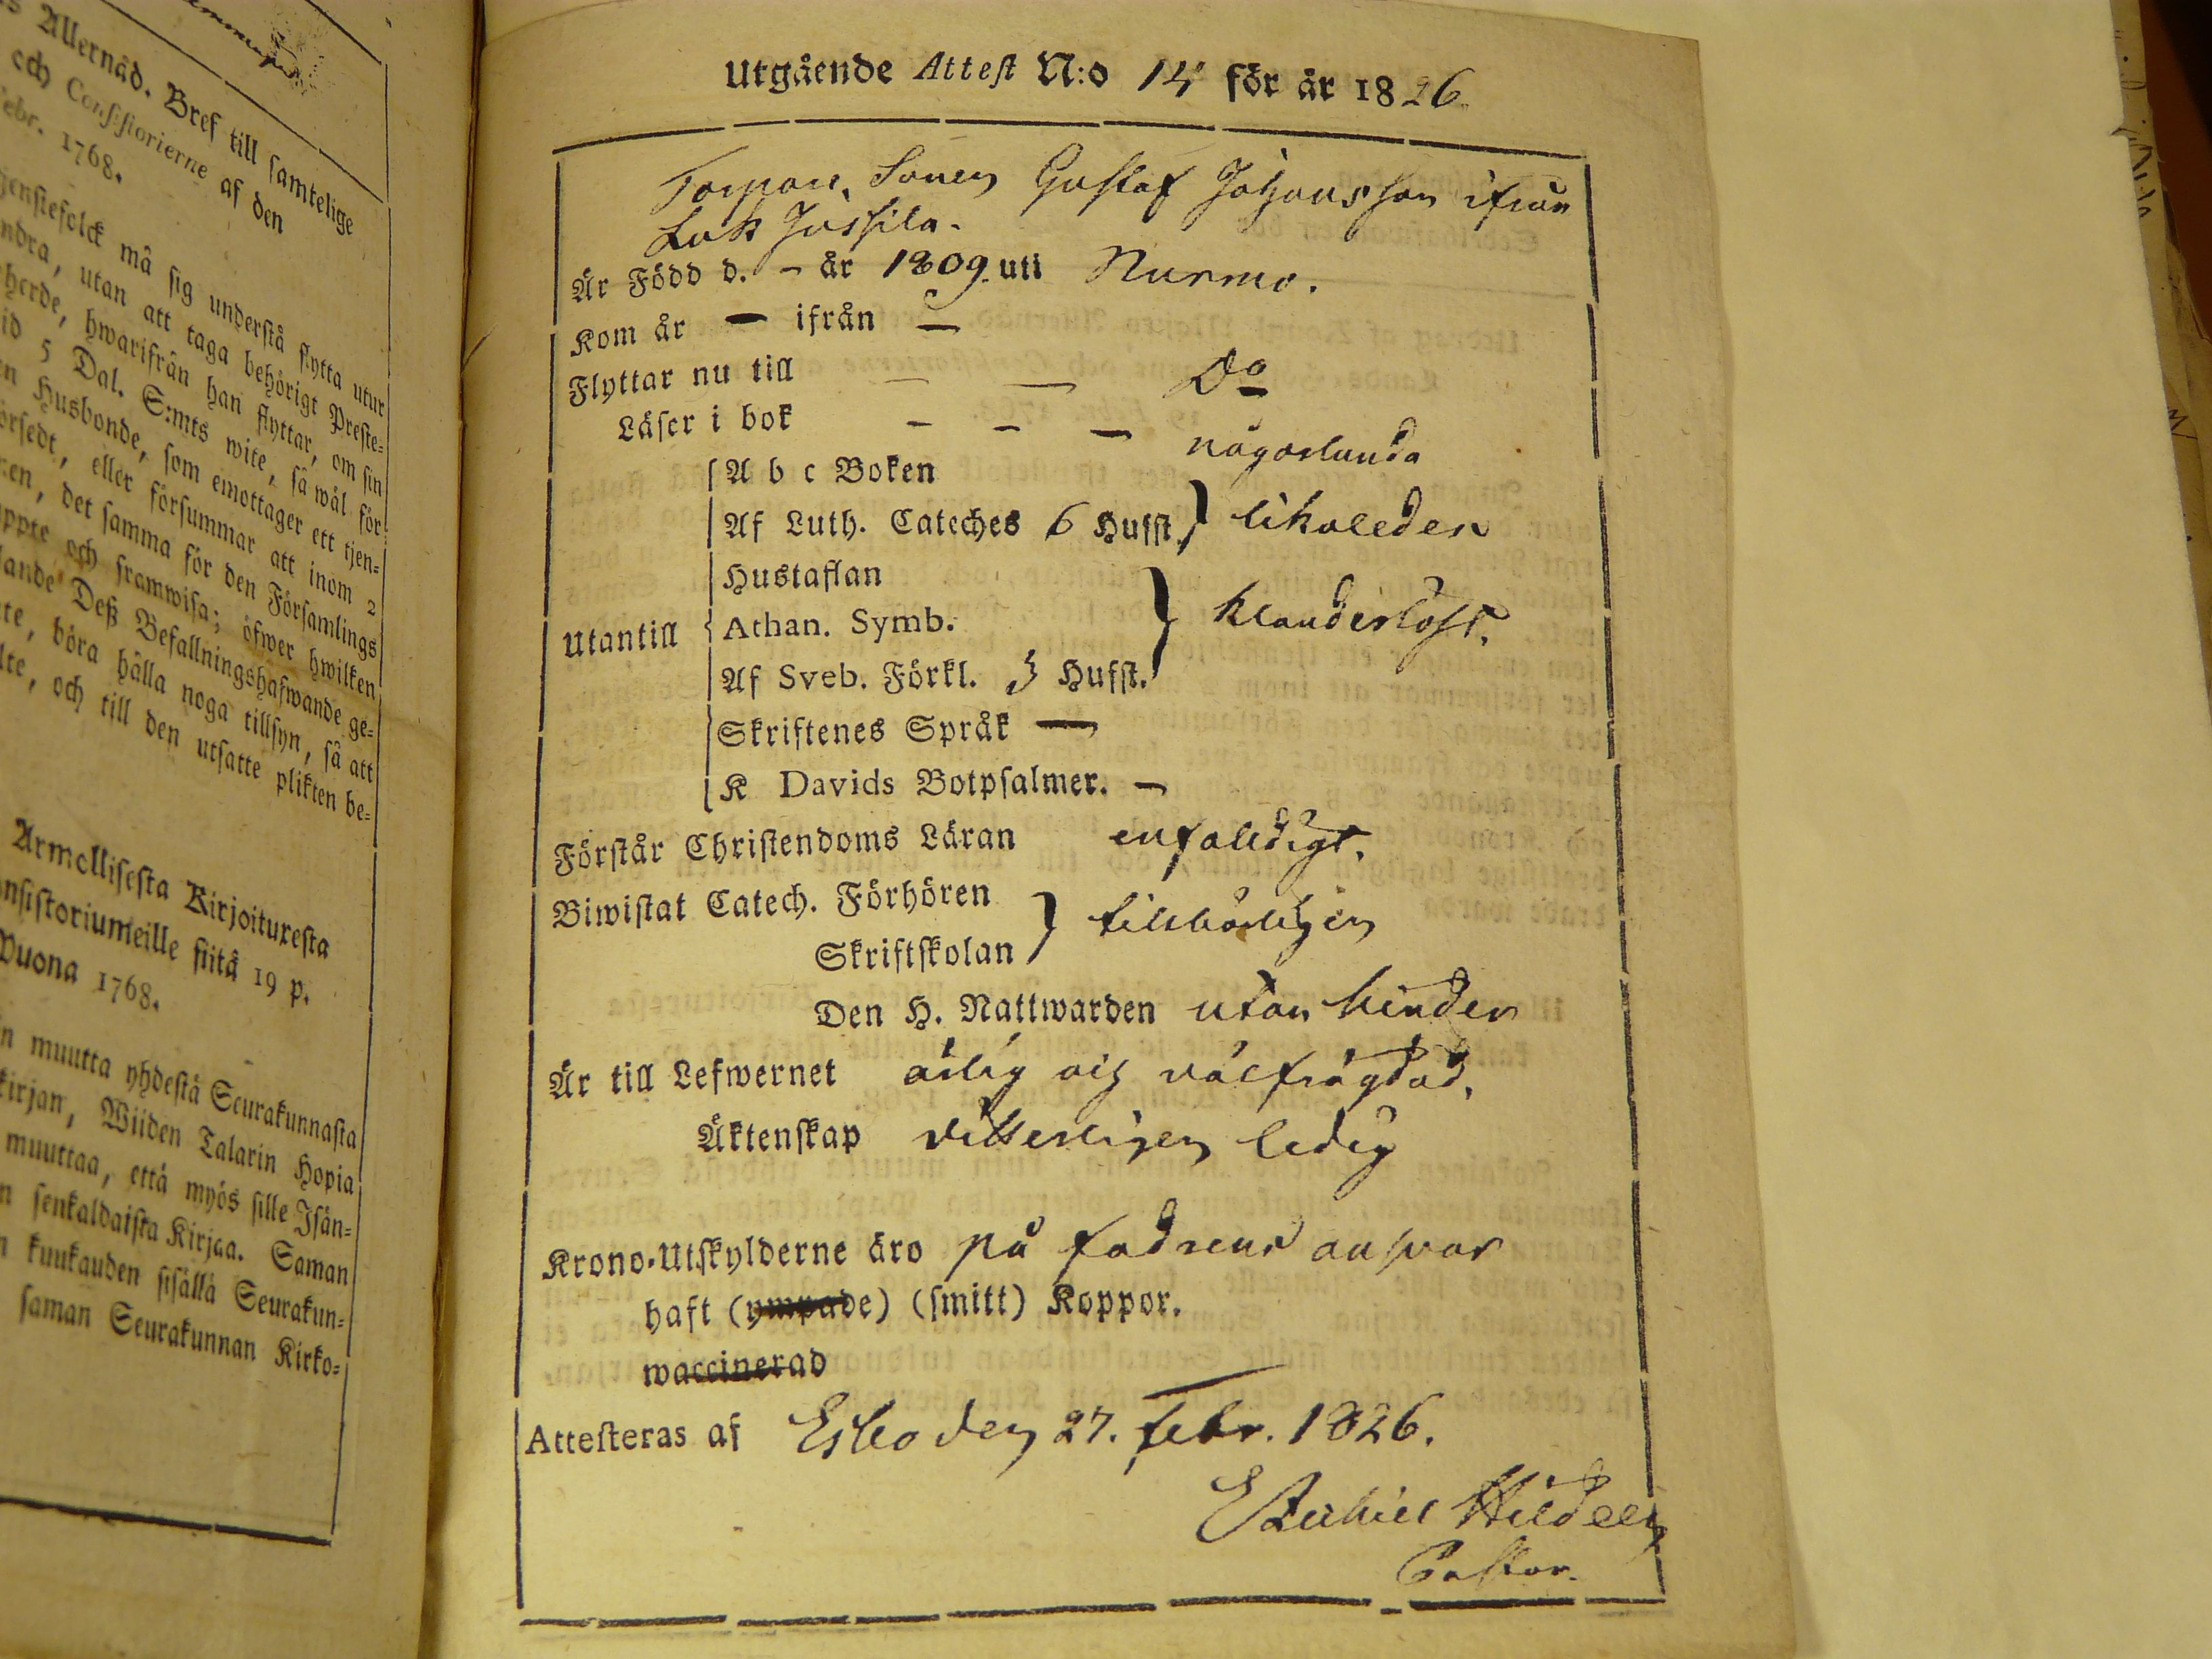 s Allernåd. Bref till samtelige
och Consistorierne af den
ebr. 1768.
jenstefolck må sig understå flytta utur
ndra, utan att taga behörigt Preste-
herde, hwarifrån han flyttar, om sin
id 5 Dal. S:mts wite, så wål för
n Husbonde, som emottager ett tjen-
örsedt, eller försummar att inom 2
en, det samma för den Församlings
uppte och framwisa; öfwer hwilken
lande Deß Befallningshafwande ge-
te, böra hålla noga tillsyn, så att
lte, och till den utsatte plikten be-
Armollisesta Kirjoituxesta
nsistoriumeille siitä 19 p.
Vuona 1768.
n muutta yhdestä Seurakunnasta
kirjan, Wiiden Talarin Hopia
muuttaa, että myös sille Isän-
n senkaldaista Kirjaa. Saman
n kuukauden sisällä Seurakun-
saman Seurakunnan Kirko-
Utgående Attest N:o 14 för år 1826
Torpare Sonen Gustaf Johansson ifrån
Jussila.
Är Född d. - år 1809 uti Nurmo.
Kom år — ifrån —
Flyttar nu till — — Do
Läser i bok - - — någorlunda
A b c Boken
Af Luth. Cateches 6 Hufst. } likaledes
Hustaflan
Utantill { Athan. Symb. } klanderlöst.
Af Sveb. Förkl. 3 Hufst.
Skriftenes Språk —
K Davids Botpsalmer. —
Förstår Christendoms Läran enfaldigt.
Biwistat Catech. Förhören } tillbörligen
Skriftskolan
Den H. Nattwarden utan hinder
Är till Lefwernet ärlig och välfrägdad.
Äktenskap vitterligen ledig
Krono-Utskylderne äro på fadrens answar
haft (ympade) (smitt) Koppor.
waccinerad
Attesteras af Esbo den 27. Febr. 1826.
Hildeen
Pastor.